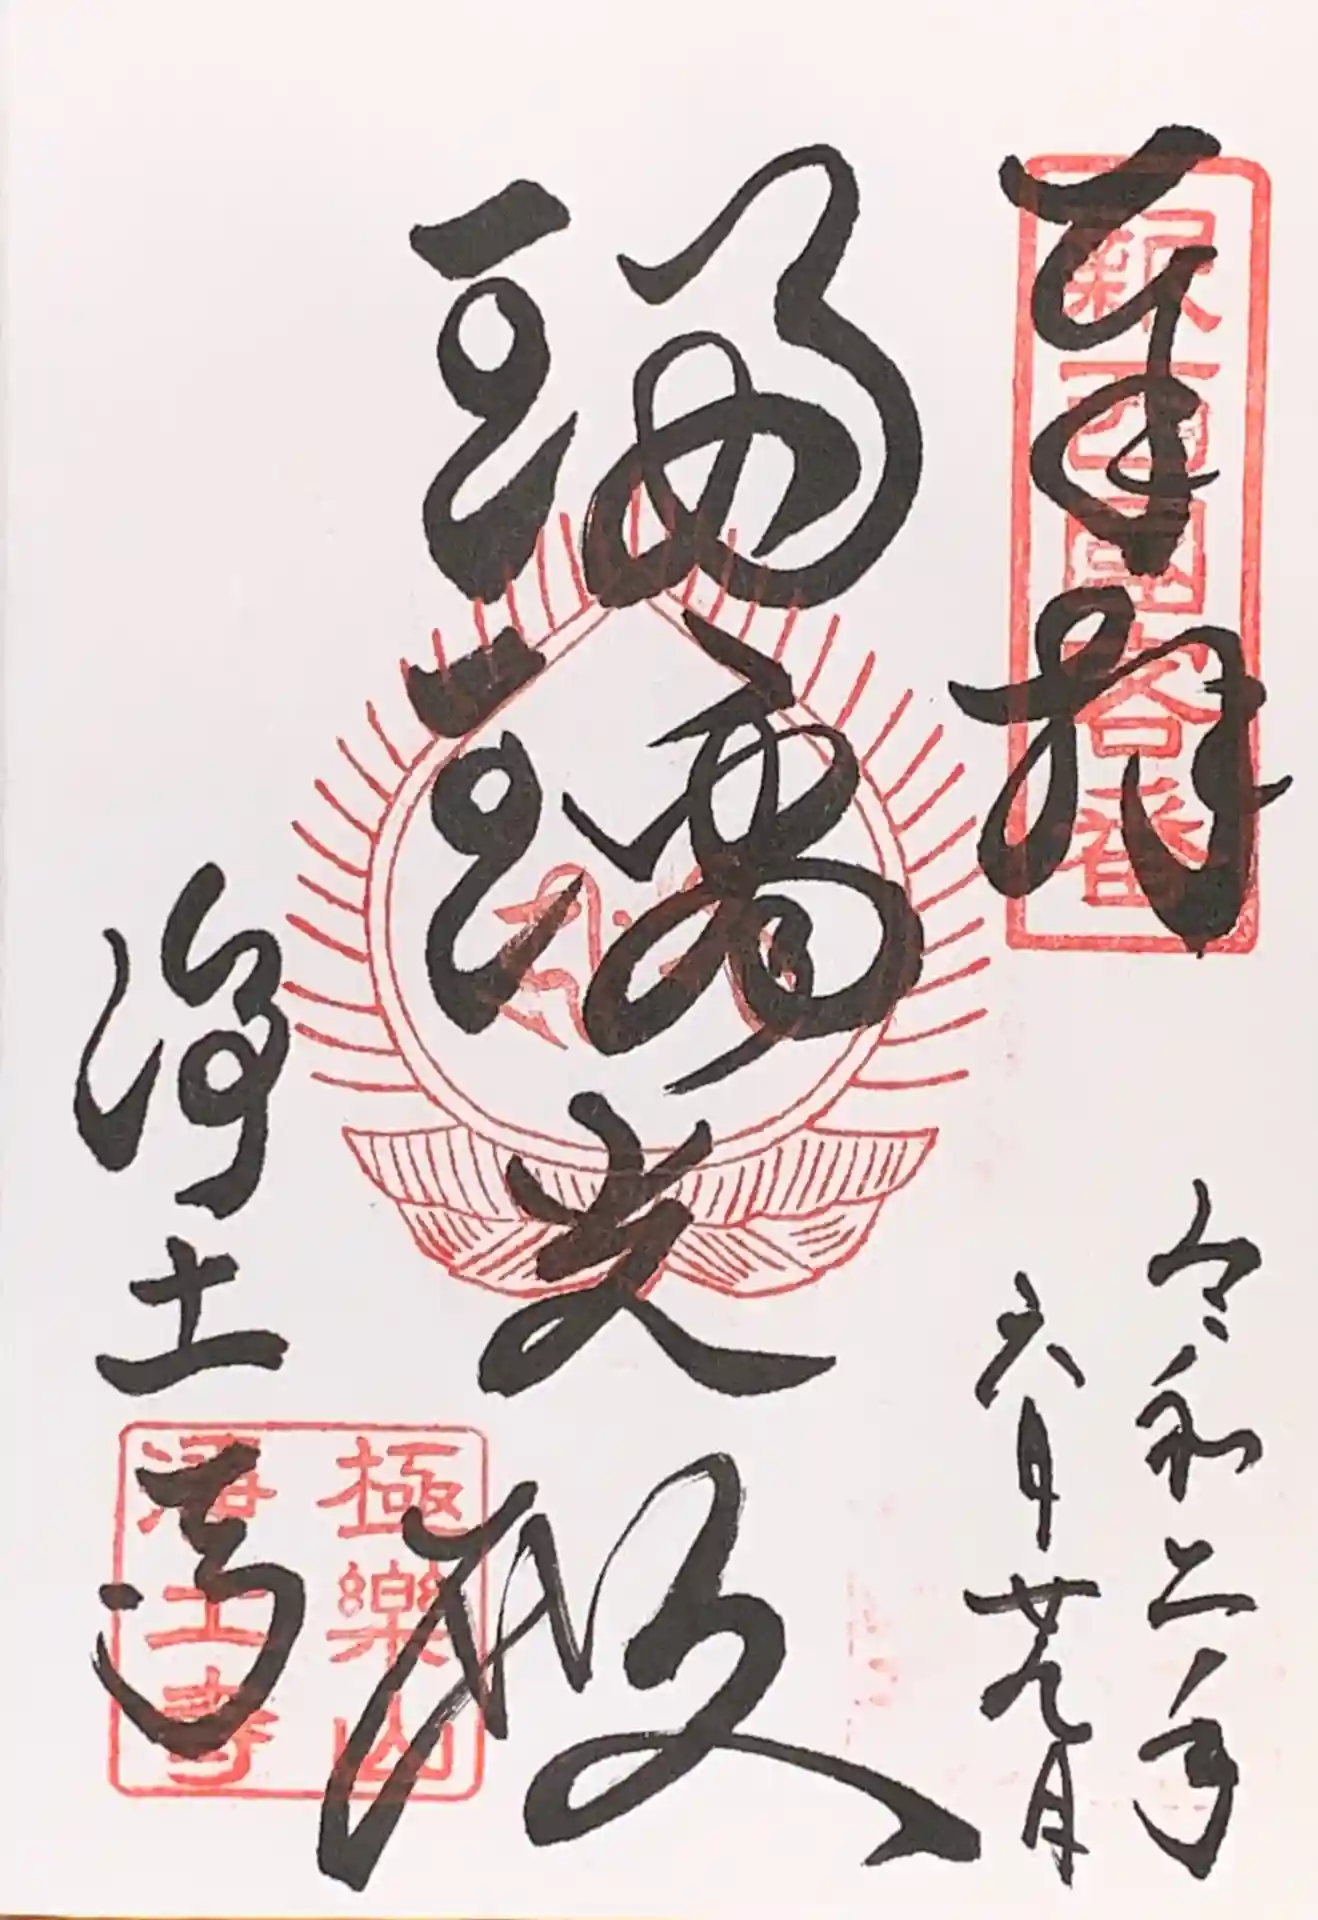 奉拝
新西国客番
令和二年
六月廿九日
瑠璃光殿
浄土寺
極樂山
浄土寺